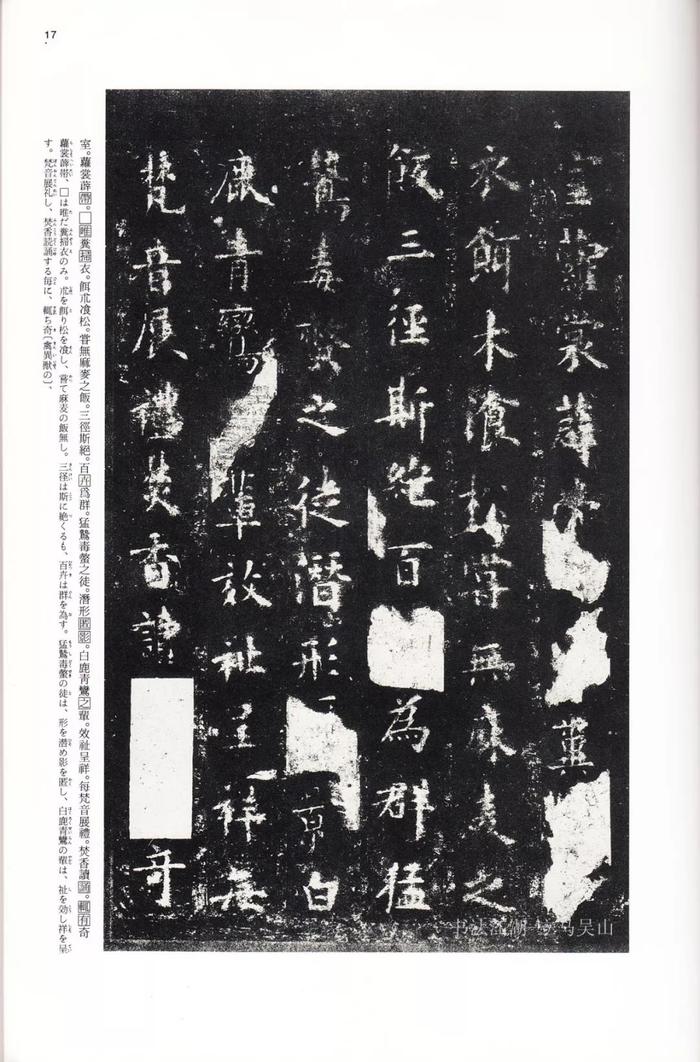 17
室蘿裳薜糞
衣餌木飡松甞無麻麦之
飯三徑斯絶百為群猛
鷙毒螫之徒潛形白
鹿青鸞輩效祉呈祥每
梵音展禮焚香讀奇
室。蘿裳薜帶。□唯糞掃衣。餌朮飡松。甞無麻麥之飯。三徑斯絕。百卉爲群。猛鷙毒螫之徒。潛形匿影。白鹿青鸞之輩。效祉呈祥。每梵音展禮。焚香讀誦。輒有奇
蘿裳薜帯、□は唯だ糞掃衣のみ。朮を餌り松を飡し、甞て麻麦の飯無し。三径は斯に絶くるも、百卉は群を為す。猛鷙毒螫の徒は、形を潜め影を匿し、白鹿青鸞の輩は、祉を効し祥を呈
す。梵音展礼し、焚香読誦する毎に、輒ち奇〔禽異獣の〕、
书法江湖 马吴山